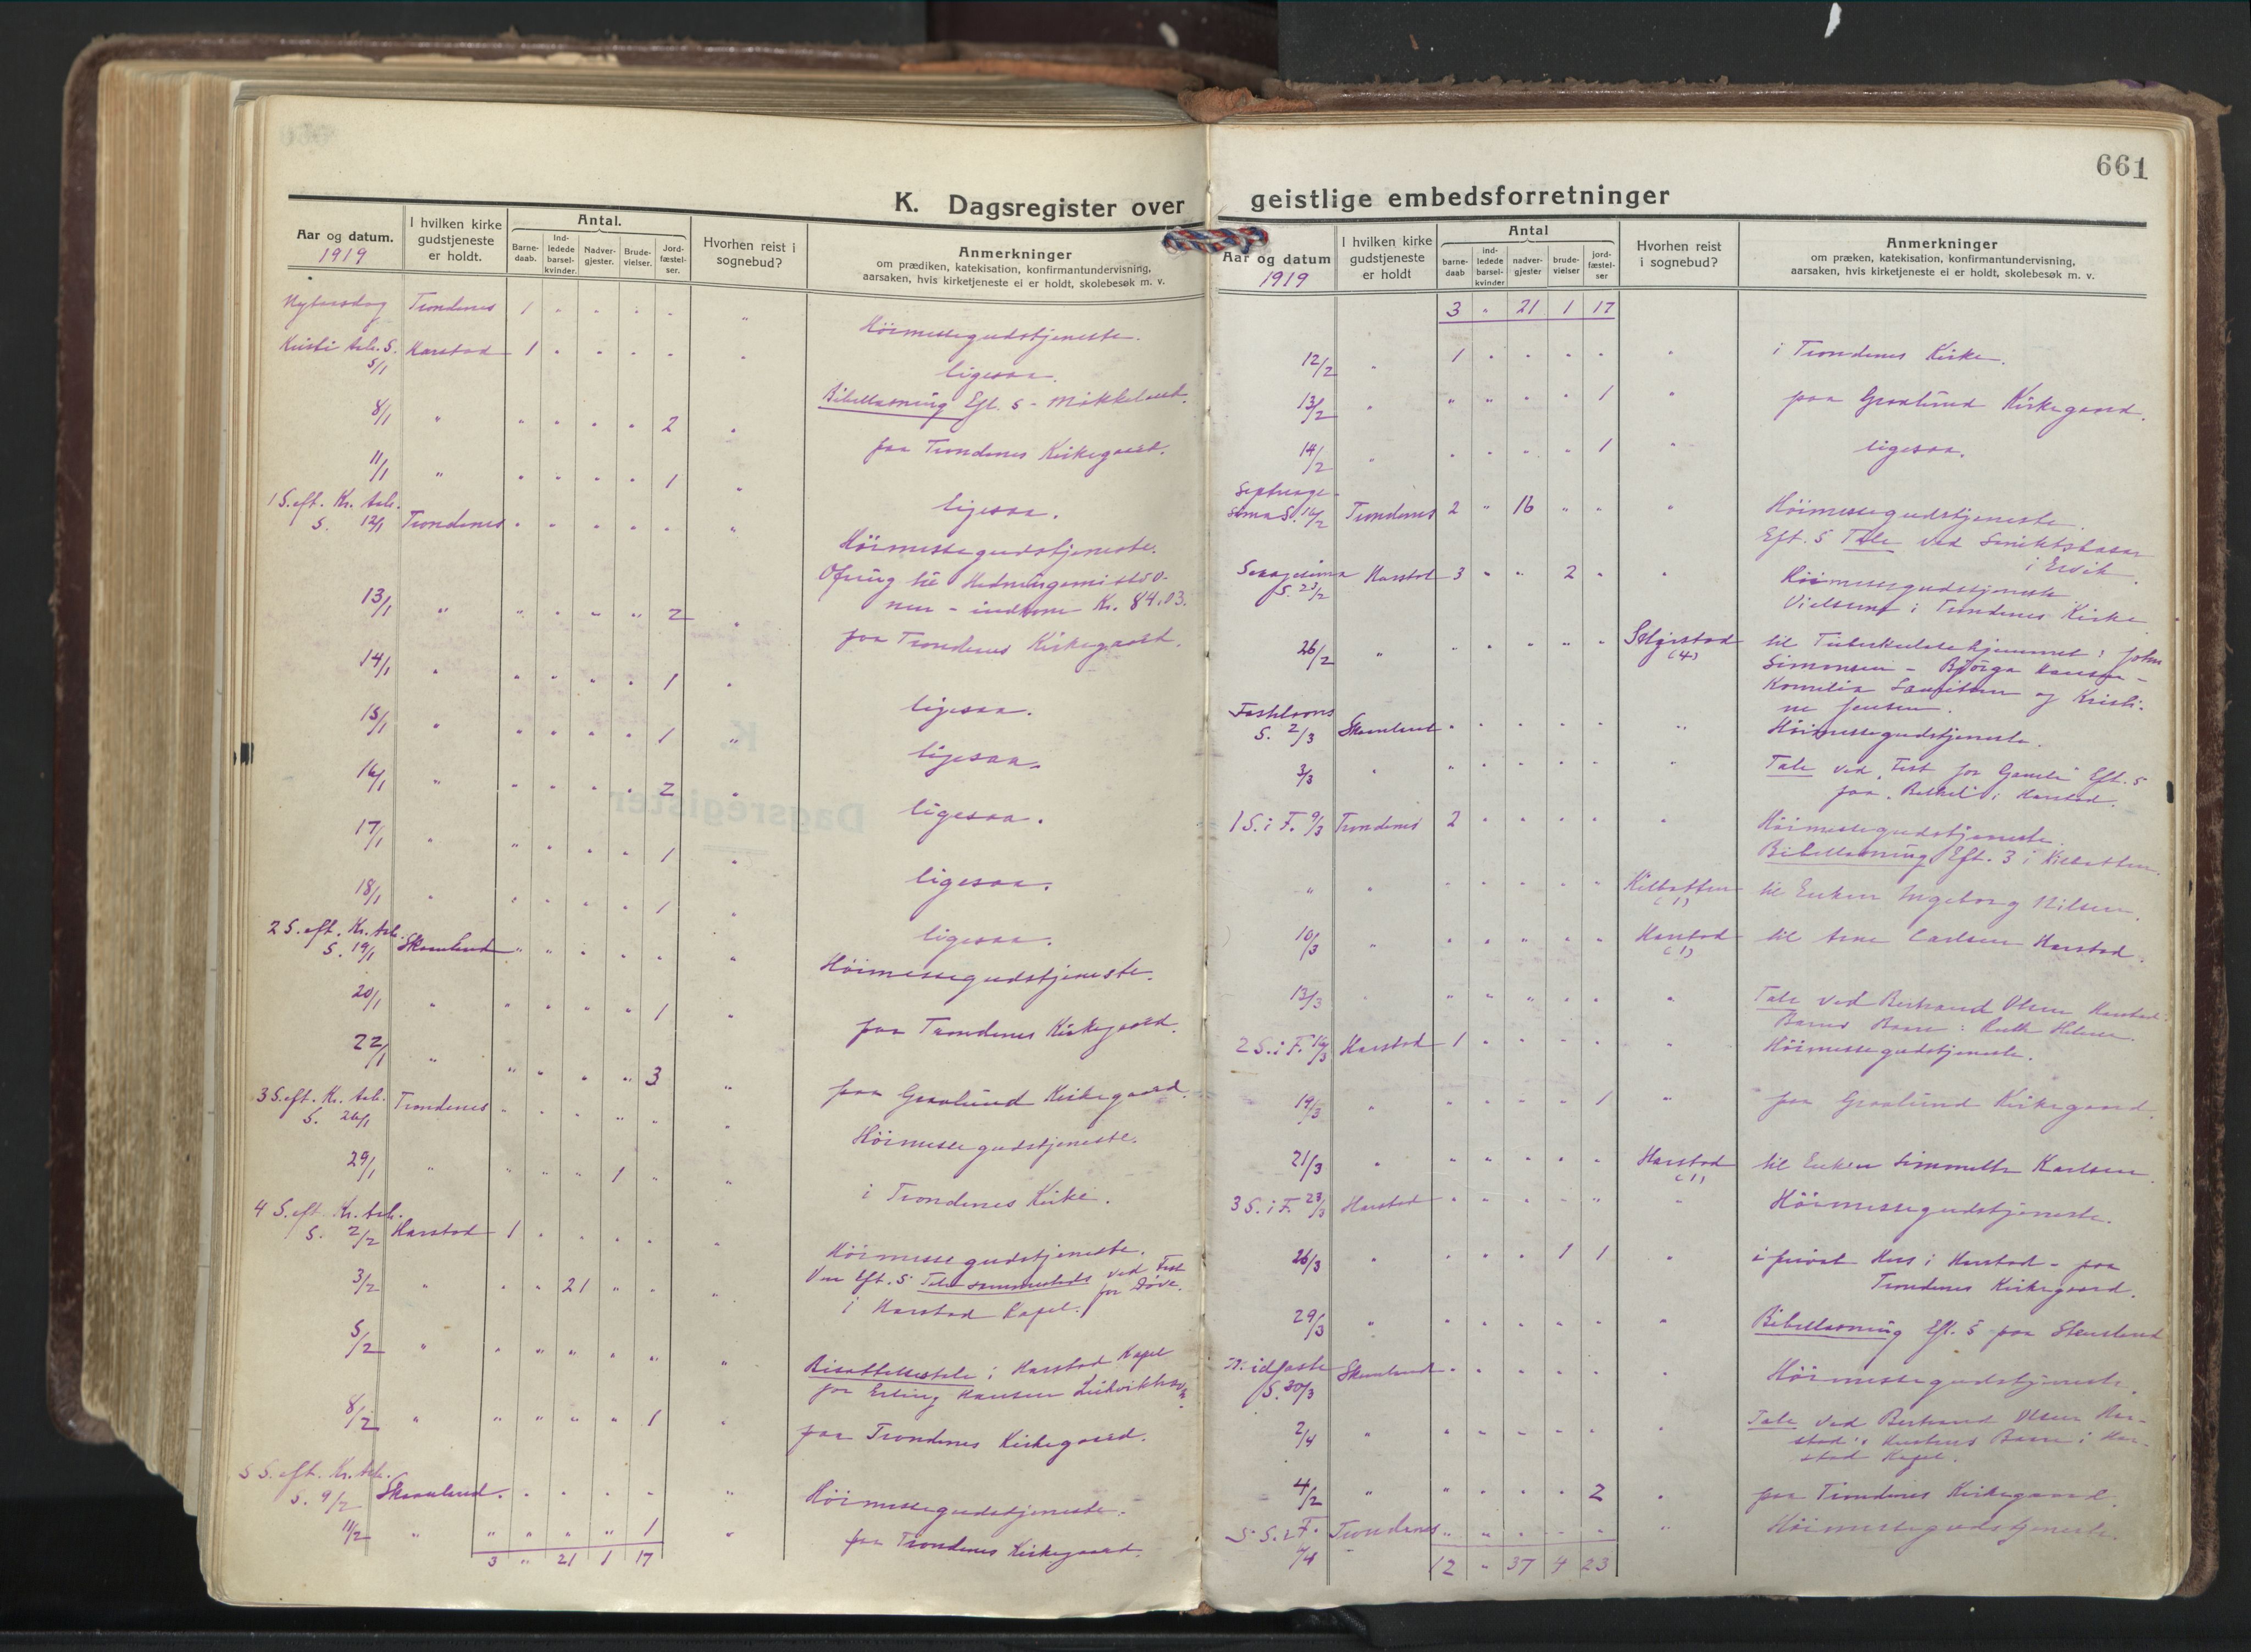 661
K. Dagsregister over geistlige embedsforretninger
Aar og datum. 1919 | I hvilken kirke gudstjeneste er holdt. | Antal. | Barne-daab. | Ind-ledede barsel-kvinder. | Nadver-gjester. | Brude-vielser. | Jord-fæstel-ser. | Hvorhen reist i sognebud? | Anmerkninger om prædiken, katekisation, konfirmantundervisning, aarsaken, hvis kirketjeneste ei er holdt, skolebesøk m. v.
Nytaarsdag Trondenes 1 " " " " " Höimessegudstjeneste.
Kristi Aab. S. 5/1 Harstad 1 " " " " " ligesaa.
Bibellæsning Eft. 5 - Møkkeland.
8/1 " " " " " 2 " paa Trondenes Kirkegaard.
11/1 " " " " " 1 " ligesaa.
1 S. eft. Kr. Aab.
S. 12/1 Trondenes " " " " " " Höimessegudstjeneste.
Ofring til Hedningemissio-
nen - indkom Kr. 84,03.
13/1 " " " " " 2 " paa Trondenes Kirkegaard.
14/1 " " " " " 1 " ligesaa.
15/1 " " " " " 1 " ligesaa.
16/1 " " " " " 2 " ligesaa.
17/1 " " " " " 1 " ligesaa.
18/1 " " " " " 1 " ligesaa.
2 S. eft. Kr. Aab.
S. 19/1 Skaanland " " " " " " Höimessegudstjeneste.
20/1 " " " " " 1 " paa Trondenes Kirkegaard.
22/1 " " " " " 3 " paa Graalund Kirkegaard.
3 S. eft. Kr. Aab.
S. 26/1 Trondenes " " " " " " Höimessegudstjeneste.
29/1 " " " " 1 " " i Trondenes Kirke.
4 S. eft. Kr. Aab.
S. 2/2 Harstad 1 " " " " " Höimessegudstjeneste.
Eft. 5 Tale sammesteds ved Fest for Døve.
3/2 " " " 21 " " " i Harstad Kapel.
5/2 " " " " " " " Bisættelsestale i Harstad Kapel
for Erling Hansen
8/2 " " " " " 1 " paa Trondenes Kirkegaard.
5 S. eft. Kr. Aab.
S. 9/2 Skaanland " " " " " " Höimessegudstjeneste.
11/2 " " " " " 1 " paa Trondenes Kirkegaard.
3 " 21 1 17
Aar og datum 1919 | I hvilken kirke gudstjeneste er holdt | Antal | barne-daab | ind-ledede barsel-kvinder | nadver-gjester | brude-vielser | jord-fæstel-ser | Hvorhen reist i sognebud? | Anmerkninger om præken, katekisation, konfirmantundervisning, aarsaken, hvis kirketjeneste ei er holdt, skolebesøk m. v.
3 " 21 1 17
12/2 " 1 " " " " " i Trondenes Kirke.
13/2 " " " " " 1 " paa Graalund Kirkegaard.
14/2 " " " " " 1 " ligesaa.
Septuage-
sima S. 16/2 Trondenes 2 " 16 " " " Höimessegudstjeneste.
Eft. 5 Tale ved
i Ervik.
Sexagesima S. 23/2 Harstad 3 " " 2 " " Höimessegudstjeneste
Vielserne i Trondenes Kirke.
26/2 " " " " " " (4) til Tuberkulosehjemmet: John
Simonsen - Bjørga Hansen -
Kornelia Lauritsen og Kristi-
ne Jensen.
Fastelavns
S. 2/3 Skaanland " " " " " " Höimessegudstjeneste.
3/3 " " " " " " " Tale ved "Fest for Gamle" Eft. 5
paa "Bethel" i Harstad.
1 S. i F. 9/3 Trondenes 2 " " " " " Höimessegudstjeneste.
Bibellæsning Eft. 3 i Kilbotten.
" " " " " " " Kilbotten (1) til Enken Ingeborg Nilsen.
10/3 " " " " " " Harstad (1) til Arne Carlsen Harstad.
13/3 " " " " " " " Tale ved Bertrand Olsen Harstad
Barns Baare: Ruth Helene.
2 S. i F. 16/3 Harstad 1 " " " " " Höimessegudstjeneste.
19/3 " " " " " 1 " paa Graalund Kirkegaard.
21/3 " " " " " " Harstad (1) til Enken Karlsen.
3 S. i F. 23/3 Harstad " " " " " " Höimessegudstjeneste.
26/3 " " " " 1 1 " i privat Hus i Harstad - paa
Trondenes Kirkegaard.
29/3 " " " " " " " Bibellæsning Eft. 5 paa Stensland
Midfaste
S. 30/3 Skaanland " " " " " " Höimessegudstjeneste.
2/4 " " " " " " " Tale ved Bertrand Olsen Har-
stad's Hustrus Baare i Har-
stad Kapel.
4/2 " " " " " 2 " paa Trondenes Kirkegaard.
5 S. i F. /4 Trondenes " " " " " " Höimessegudstjeneste.
12 " 37 4 23